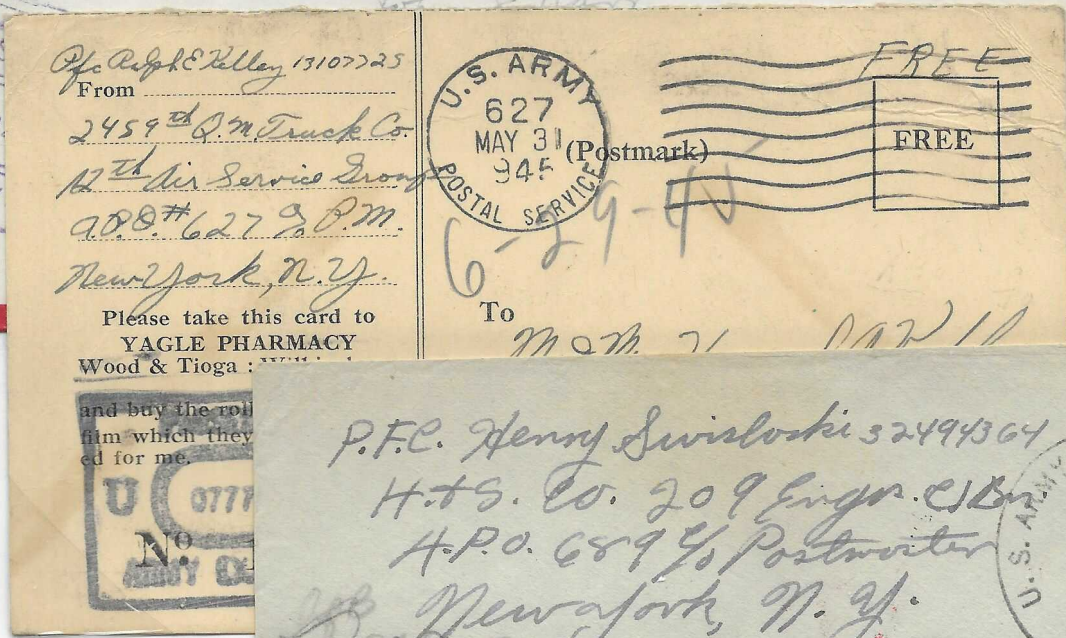 Pfc Ralph E Kelley 13107725
From
2459th Q.M. Truck Co.
12th Air Service Group
A.P.O.# 627 c/o P.M.
New York, N.Y.
Please take this card to
YAGLE PHARMACY
Wood & Tioga :
and buy the roll
film which they
ed for me.
U 0777
No.
ARMY
U.S. ARMY
627
MAY 31
945
POSTAL SERVICE
(Postmark)
FREE
FREE
6-29-45
To
P.F.C. Henry Swisloski 32494364
H.&S. Co. 209 Engr. C Bn
A.P.O. 689 c/o Postmaster
New York, N.Y.
U.S. ARMY